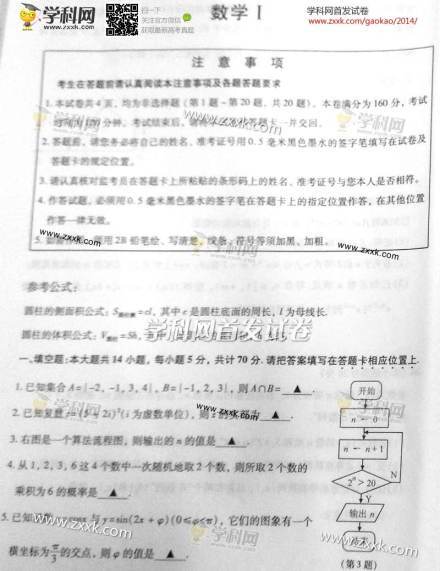 学科网
www.zxxk.com
扫一下
关注官方微信
获取最新高考真题
数学Ⅰ
学科网首发试卷
www.zxxk.com/gaokao/2014/
注意事项
考生在答题前请认真阅读本注意事项及各题答题要求
1.本试卷共4页,均为非选择题(第1题~第20题,共20题)。本卷满分为160分,考试
时间为120分钟。考试结束后,请将 答题卡一片交回。
2.答题前,请您务必将自己的姓名、准考证号用0.5毫米黑色墨水的签字笔填写在试卷及
答题卡的规定位置。
3.请认真核对监考员在答题卡上所粘贴的条形码上的姓名、准考证号与您本人是否相符。
4.作答试题,必须用0.5毫米黑色墨水的签字笔在答题卡上的指定位置作答,在其他位置
作答一律无效。
5.如 用2B铅笔绘、写清楚,线条、符号等须加黑、加粗。
www.zxxk.com
参考公式:
圆柱的侧面积公式:S圆柱侧=cl,其中c是圆柱底面的周长,l为母线长.
圆柱的体积公式:V圆柱=Sh,
学科网首发试卷
一、填空题:本大题共14小题,每小题5分,共计70分.请把答案填写在答题卡相应位置上.
1.已知集合A={-2,-1,3,4},B={-1,2,3},则A∩B= ▲ .
2.已知复数z=(5+2i)²(i为虚数单位),则z的实部为 ▲ .
3.右图是一个算法流程图,则输出的n的值是 ▲ .
4.从1,2,3,6这4个数中一次随机地取2个数,则所取2个数的
乘积为6的概率是 ▲ .
5.已知函数y=cosx与y=sin(2x+φ)(0≤φ<π),它们的图象有一个
横坐标为π/3的交点,则φ的值是 ▲ .
开始
n←0
n←n+1
2ⁿ>20
N
Y
输出n
结束
(第3题)